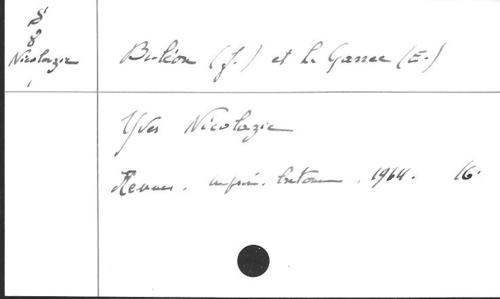 S
8
Nicolazic
1
Buléon (J.) et Le Garrec (E.)
Yves Nicolazic
Rennes. imprim. bretonne. 1964. 16.